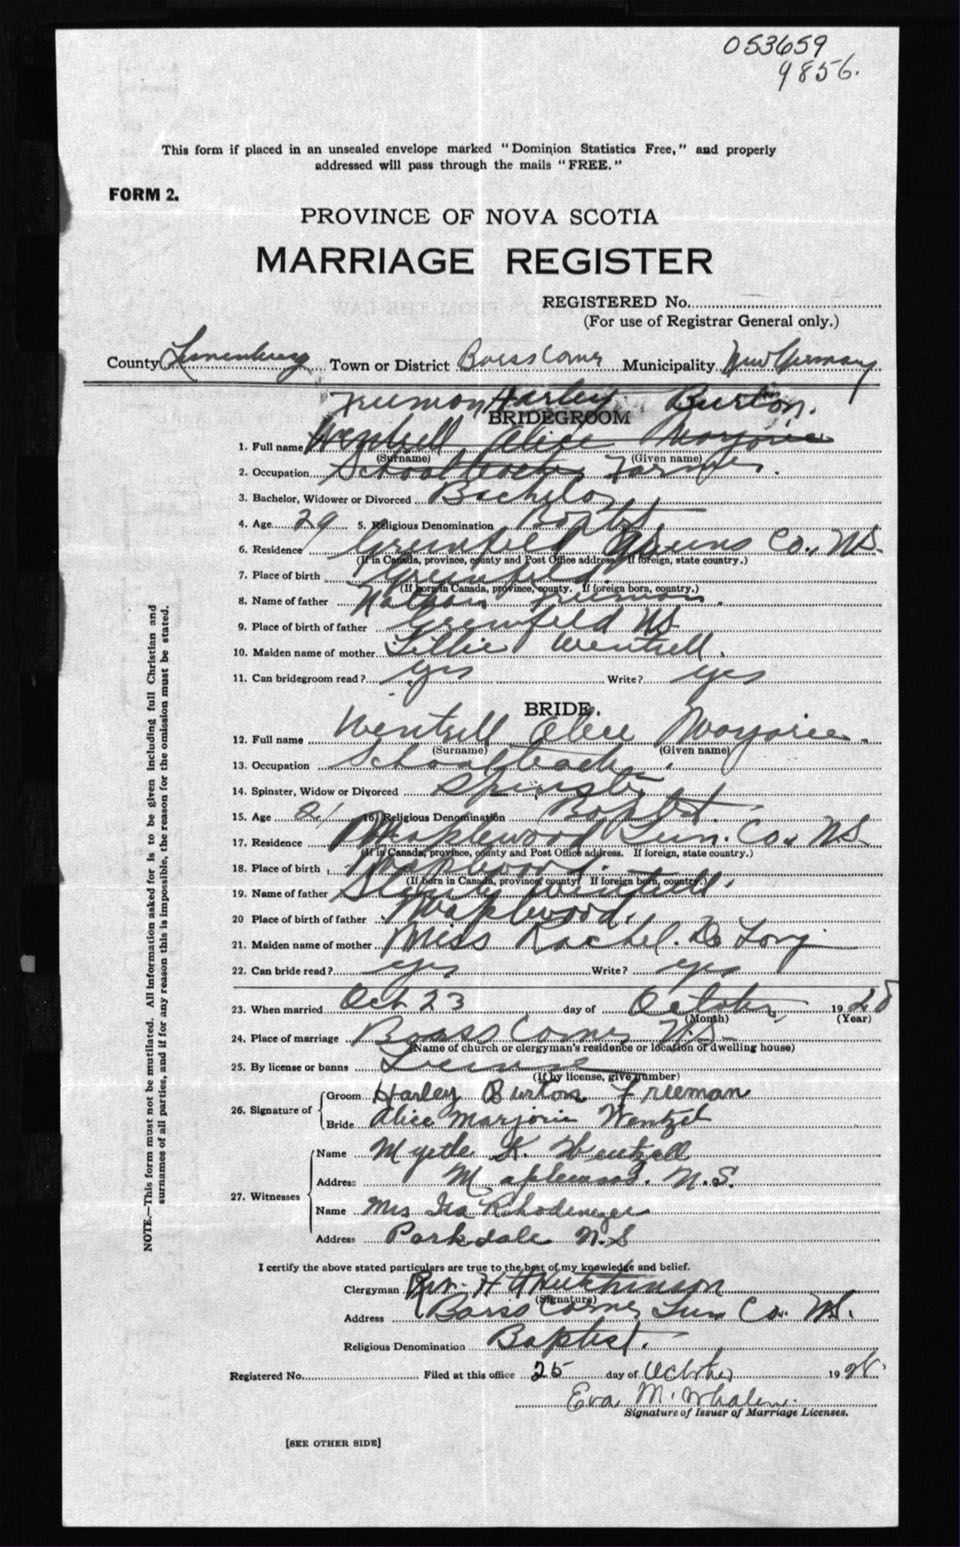 053659
9856.
This form if placed in an unsealed envelope marked "Dominion Statistics Free," and properly
addressed will pass through the mails "FREE."
FORM 2.
PROVINCE OF NOVA SCOTIA
MARRIAGE REGISTER
REGISTERED No.
(For use of Registrar General only.)
County Lunenburg Town or District Barss Corner Municipality New Germany
Freeman Harley Burton.
BRIDEGROOM
1. Full name Wentzell Alice Marjorie
(Surname) (Given name)
2. Occupation Schoolteacher Farmer.
3. Bachelor, Widower or Divorced Bachelor
4. Age 29 5. Religious Denomination Baptist
6. Residence Greenfield Queens Co., N.S.
(If in Canada, province, county and Post Office address. If foreign, state country.)
7. Place of birth Greenfield
(If born in Canada, province, county. If foreign born, country.)
8. Name of father Nathan Freeman.
9. Place of birth of father Greenfield NS
10. Maiden name of mother Lillie Wentzell.
11. Can bridegroom read? yes Write? yes
BRIDE.
12. Full name Wentzell Alice Marjorie.
(Surname) (Given name)
13. Occupation Schoolteacher.
14. Spinster, Widow or Divorced Spinster
15. Age 21 16. Religious Denomination Baptist.
17. Residence Maplewood Lun. Co. N.S.
(If in Canada, province, county and Post Office address. If foreign, state country.)
18. Place of birth Maplewood
(If born in Canada, province, county. If foreign born, country.)
19. Name of father Stanley Wentzell.
20 Place of birth of father Maplewood.
21. Maiden name of mother Miss Rachel. De Long
22. Can bride read? yes Write? yes
23. When married Oct 23 day of October, 1928
(Month) (Year)
24. Place of marriage Barss Corner N.S.
(Name of church or clergyman's residence or location of dwelling house)
25. By license or banns License
(If by license, give number)
26. Signature of Groom Harley Burton Freeman
Bride Alice Marjorie Wentzel
27. Witnesses Name Myrtle K. Wentzell
Address Maplewood. N.S.
Name Mrs Ira Rhodenizer
Address Parkdale N.S
I certify the above stated particulars are true to the best of my knowledge and belief.
Clergyman Rev. H Hutchinson
(Signature)
Address Barss Corner Lun Co. NS.
Religious Denomination Baptist.
Registered No. Filed at this office 25 day of October 1928.
Eva M. Whalen.
Signature of Issuer of Marriage Licenses.
[SEE OTHER SIDE]
NOTE.—This form must not be mutilated. All information asked for is to be given including full Christian and
surnames of all parties, and if for any reason this is impossible, the reason for the omission must be stated.